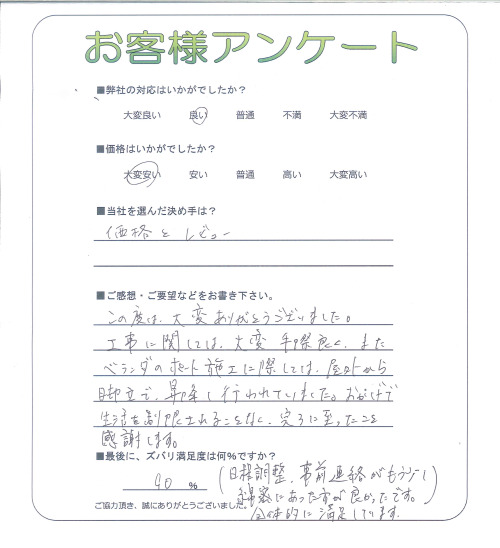 お客様アンケート
■弊社の対応はいかがでしたか?
大変良い 良い 普通 不満 大変不満
■価格はいかがでしたか?
大変安い 安い 普通 高い 大変高い
■当社を選んだ決め手は?
価格と レビュー
■ご感想・ご要望などをお書き下さい。
この度は、大変ありがとうございました。
工事に関しては、大変 手際良く、また
ベランダのボード施工に際しては、屋外から
脚立で、昇降し行われていました。おかげで
生活を制限されることなく、完了に至ったことを
感謝します。
■最後に、ズバリ満足度は何%ですか?
90 %
(日程調整、事前連絡がもう少し
綿密にあった方が良かったです。)
全体的に満足しています。
ご協力頂き、誠にありがとうございました。